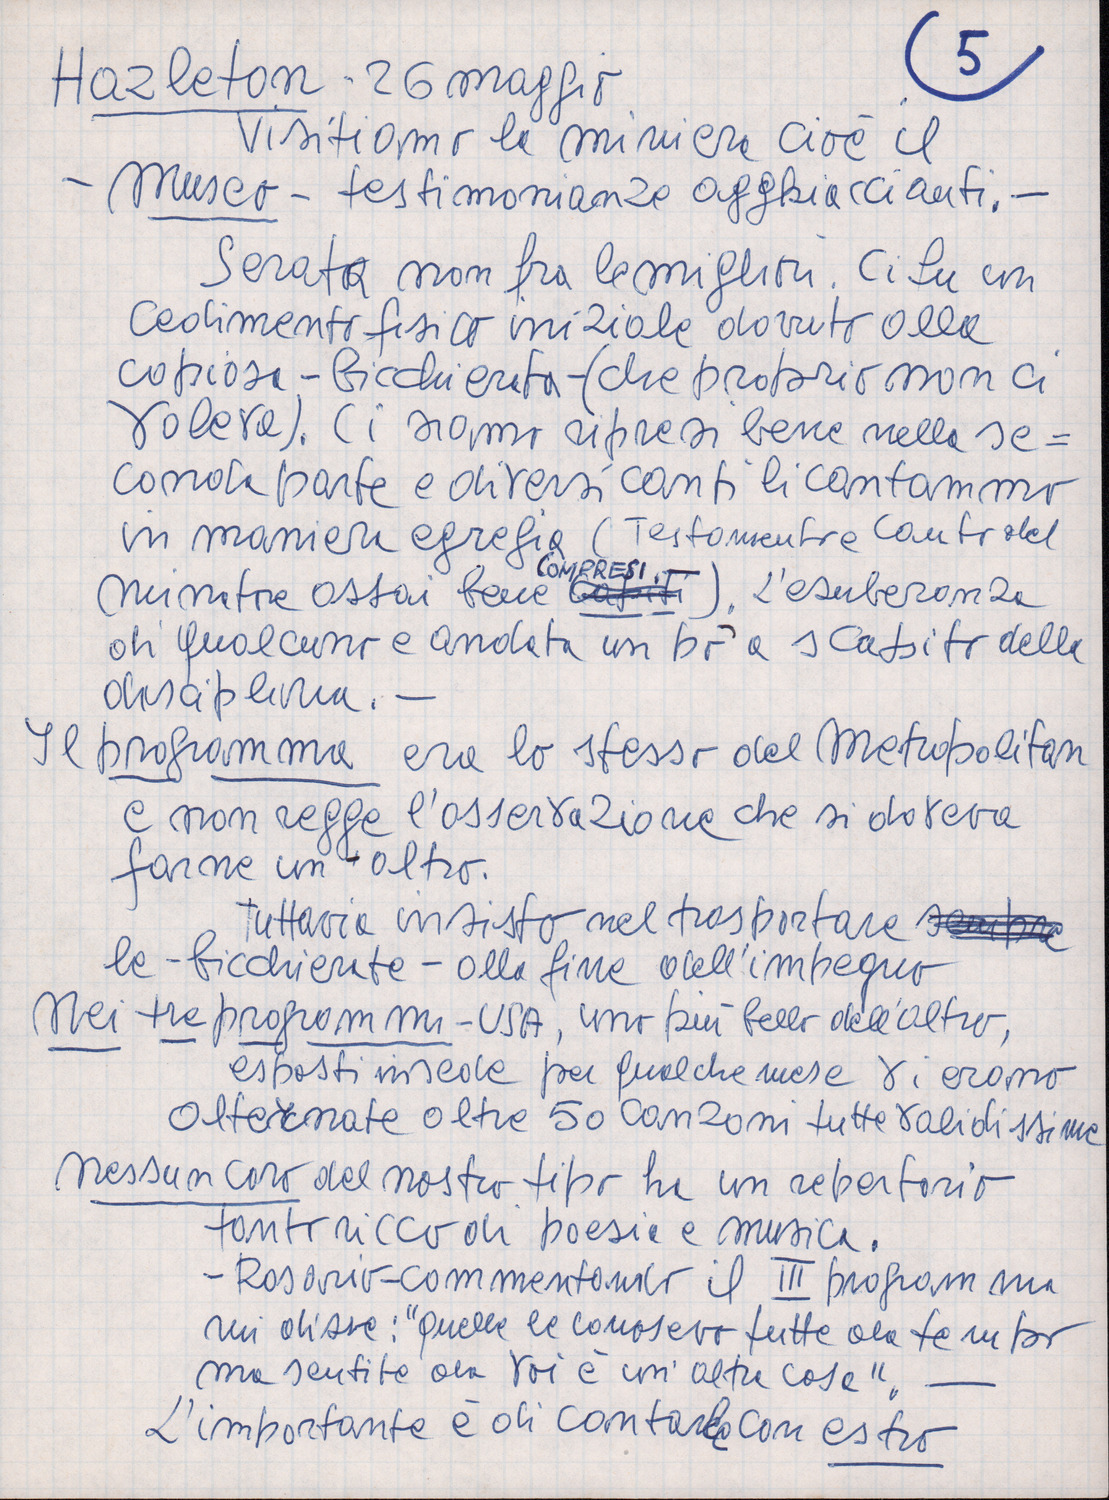 5
Hazleton - 26 maggio
Visitiamo la miniera cioè il
- Museo - testimonianze agghiaccianti. -
Serata non fra le migliori. Ci fu un
cedimento fisico iniziale dovuto alla
copiosa - bicchierata - (che proprio non ci
voleva). Ci siamo ripresi bene nella se=
conda parte e diversi canti li cantammo
in maniera egregia (Testamento e Canto del
minatore assai bene COMPRESI.). L'esuberanza
di qualcuno e andata un po' a scapito della
disciplina. -
Il programma era lo stesso del Metropolitan
e non regge l'osservazione che si doveva
farne un altro.
Tuttavia insisto nel trasportare sempre
le - bicchierate - alla fine dell'impegno
Nei tre programmi - USA, uno più bello dell'altro,
esposti in sede per qualche mese vi erano
alternate oltre 50 canzoni tutte validissime
Nessun coro del nostro tipo ha un repertorio
tanto ricco di poesia e musica.
- Rosario - commentando il III programma
mi disse: "quelle le conoscevo tutte da tempo
ma sentite da voi è un'altra cosa". -
L'importante è di cantarle con estro